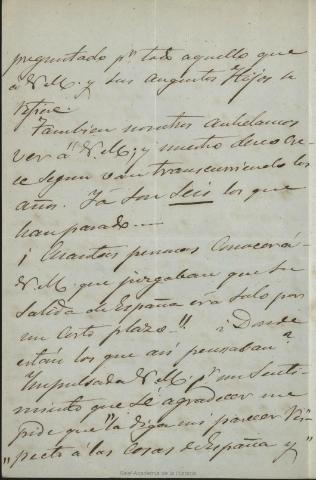 preguntado pr. todo aquello que
a V.M. y sus augustos Hijos se
refiere.
Tambien nosotros anhelamos
ver á V.M.; y nuestro deseo cre-
ce segun van transcurriendo los
años. Yá son seis los que
han pasado....
¡Cuantas personas conocerá
V.M. que juzgaban que su
salida de España era solo por
un corto plazo..!! ¿Donde
están los que asi pensaban?
Impulsada V.M. pr. un senti-
miento que sé agradecer me
pide que "la diga mi parecer res-
"pecto á las cosas de España y"
Real Academia de la Historia